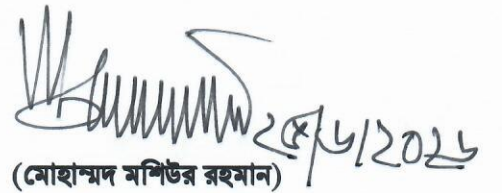 ২৫/৬/২০২৬
(মোহাম্মদ মশিউর রহমান)